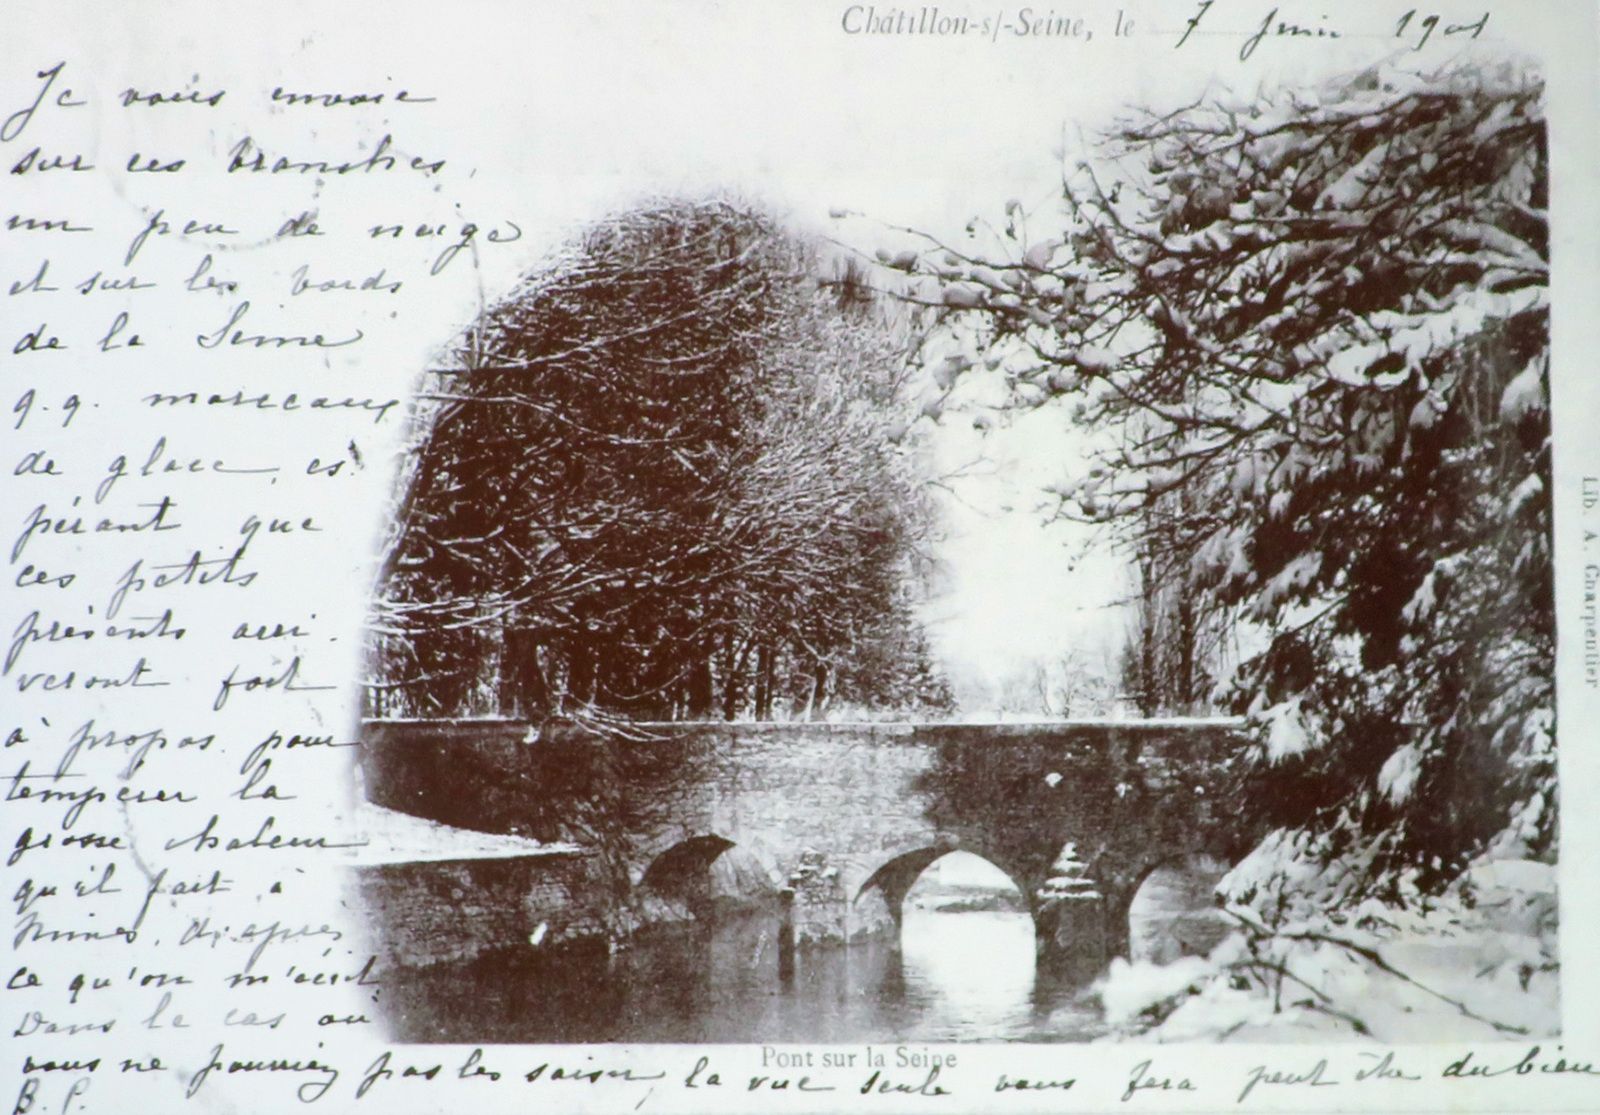 Châtillon-s/-Seine, le 7 Juin 1901
Je vous envoie
sur ces branches,
un peu de neige
et sur les bords
de la Seine
q.q. morceaux
de glace, es-
pérant que
ces petits
présents arri-
veront fort
à propos pour
tempérer la
grosse chaleur
qu'il fait à
Nîmes, d'après
ce qu'on m'écrit
Dans le cas où
vous ne pourriez pas les saisir, la vue seule vous fera peut être du bien
B. P.
Pont sur la Seine
Lib. A. Charpentier